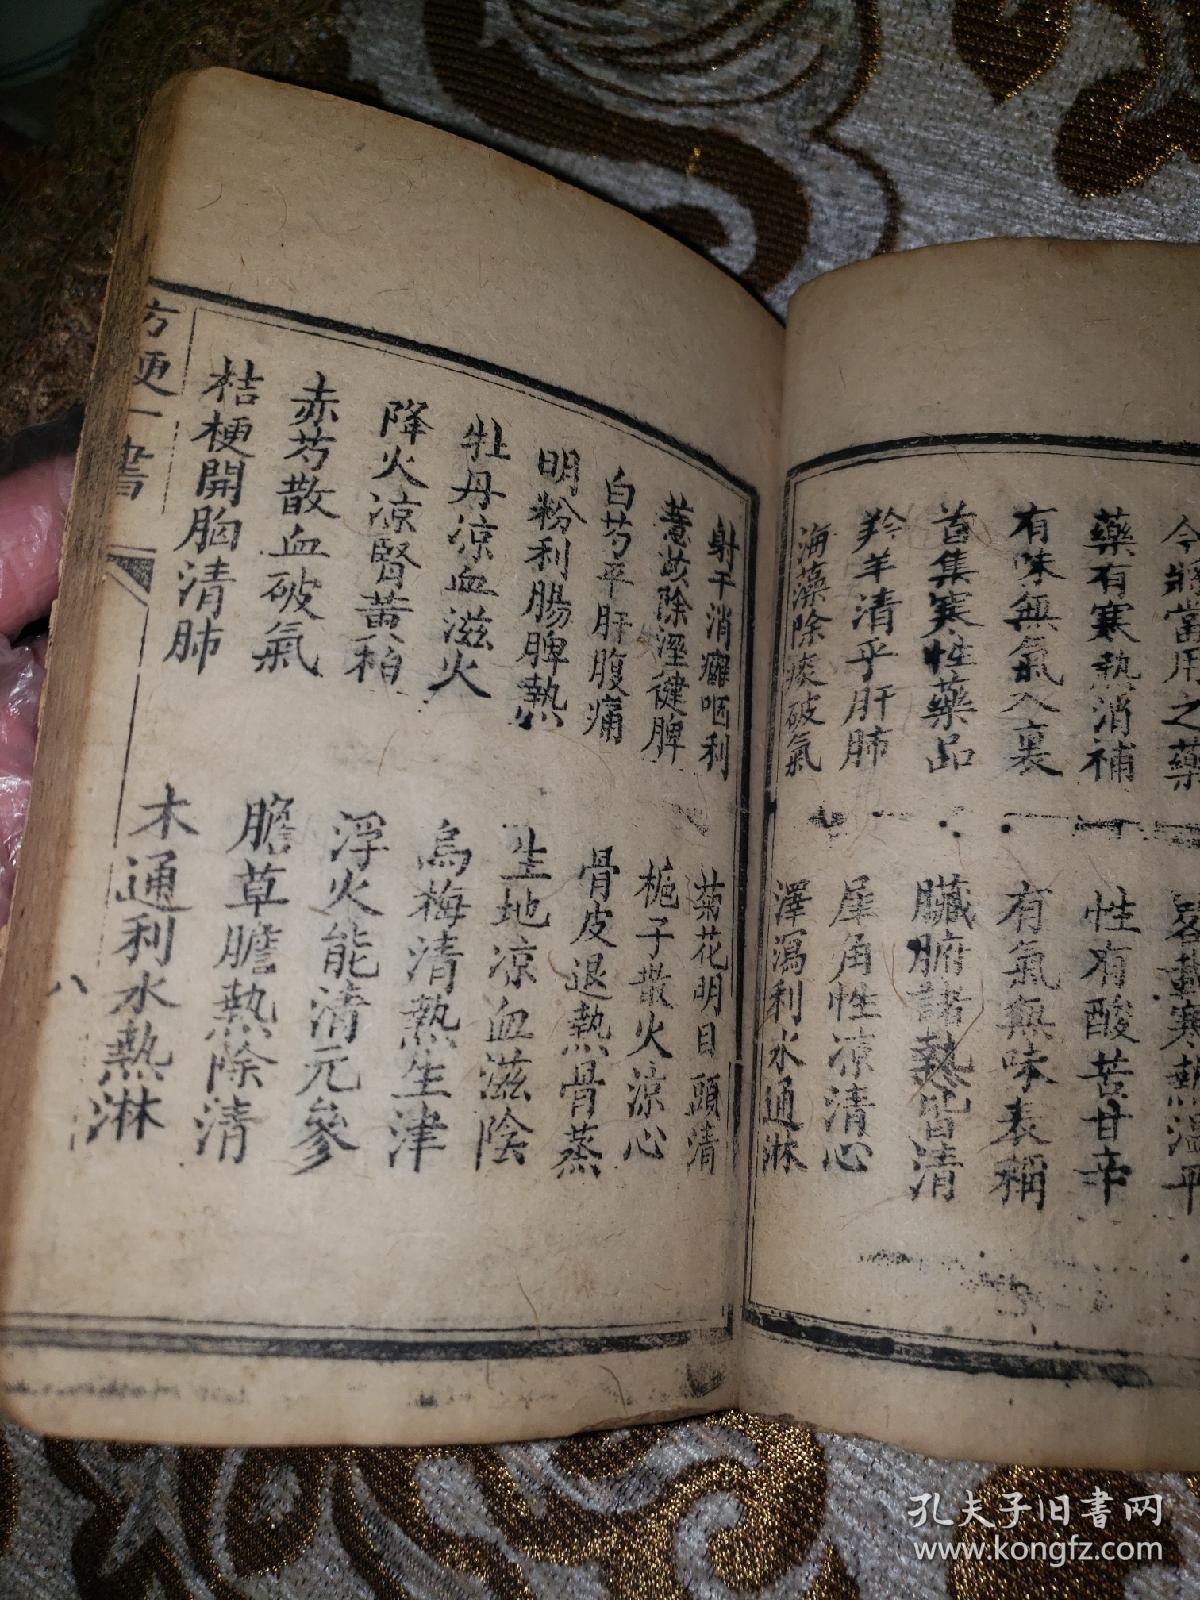 今將當用之藥 寒熱溫平
藥有寒热消補 性有酸苦甘辛
有味無氣入裏 有氣無味表稱
首集寒性藥品 臟腑諸熱皆清
羚羊清乎肝肺 犀角性凉清心
海藻除痰破氣 澤瀉利水通淋
射干消癰咽利 菊花明目頭清
薏苡除溼健脾 梔子散火涼心
白芍平肝腹痛 骨皮退熱骨蒸
明粉利腸脾熱 生地凉血滋陰
牡丹凉血滋火 烏梅清熱生津
降火凉腎黃柏 浮火能清元參
赤芍散血破氣 膽草膽熱除清
桔梗開胸清肺 木通利水熱淋
方便一書
八
孔夫子旧書网
www.kongfz.com